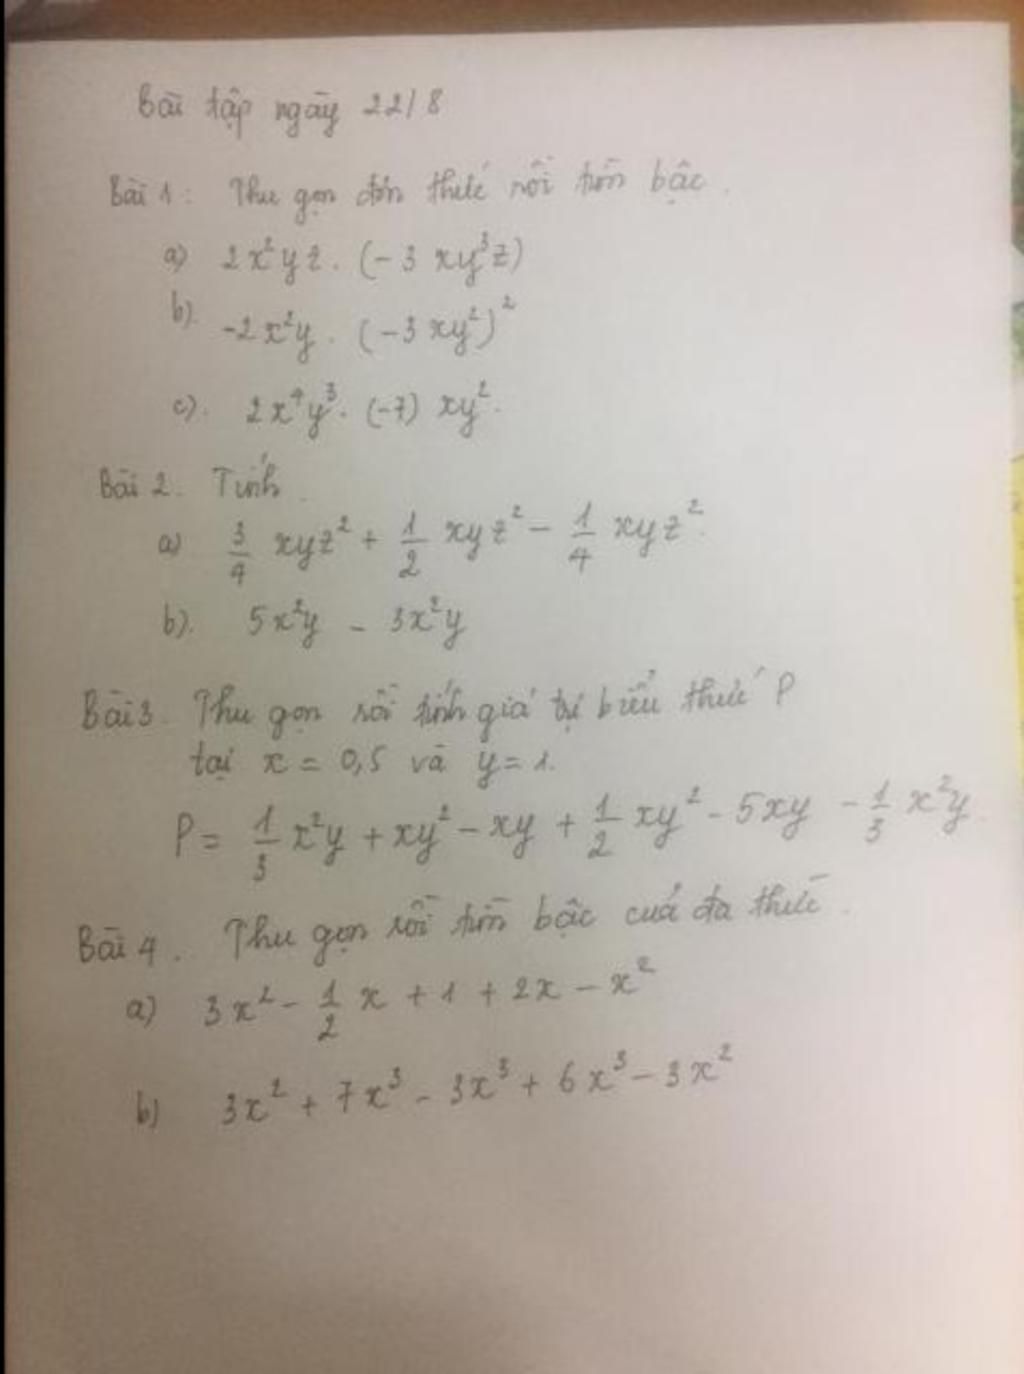 Bài tập ngày 22/8
Bài 1: Thu gọn đơn thức rồi tìm bậc.
a) 2x²yz. (-3 xy³z)
b). -2x²y. (-3 xy²)²
c). 2x⁴y³. (-7) xy².
Bài 2. Tính.
a) 3/4 xyz² + 1/2 xyz² - 1/4 xyz².
b). 5x²y - 3x²y
Bài 3. Thu gọn rồi tính giá trị biểu thức P
tại x = 0,5 và y = 1.
P = 1/3 x²y + xy² - xy + 1/2 xy² - 5xy - 1/3 x²y.
Bài 4. Thu gọn rồi tìm bậc của đa thức.
a) 3x² - 1/2 x + 1 + 2x - x²
b) 3x² + 7x³ - 3x³ + 6x³ - 3x²